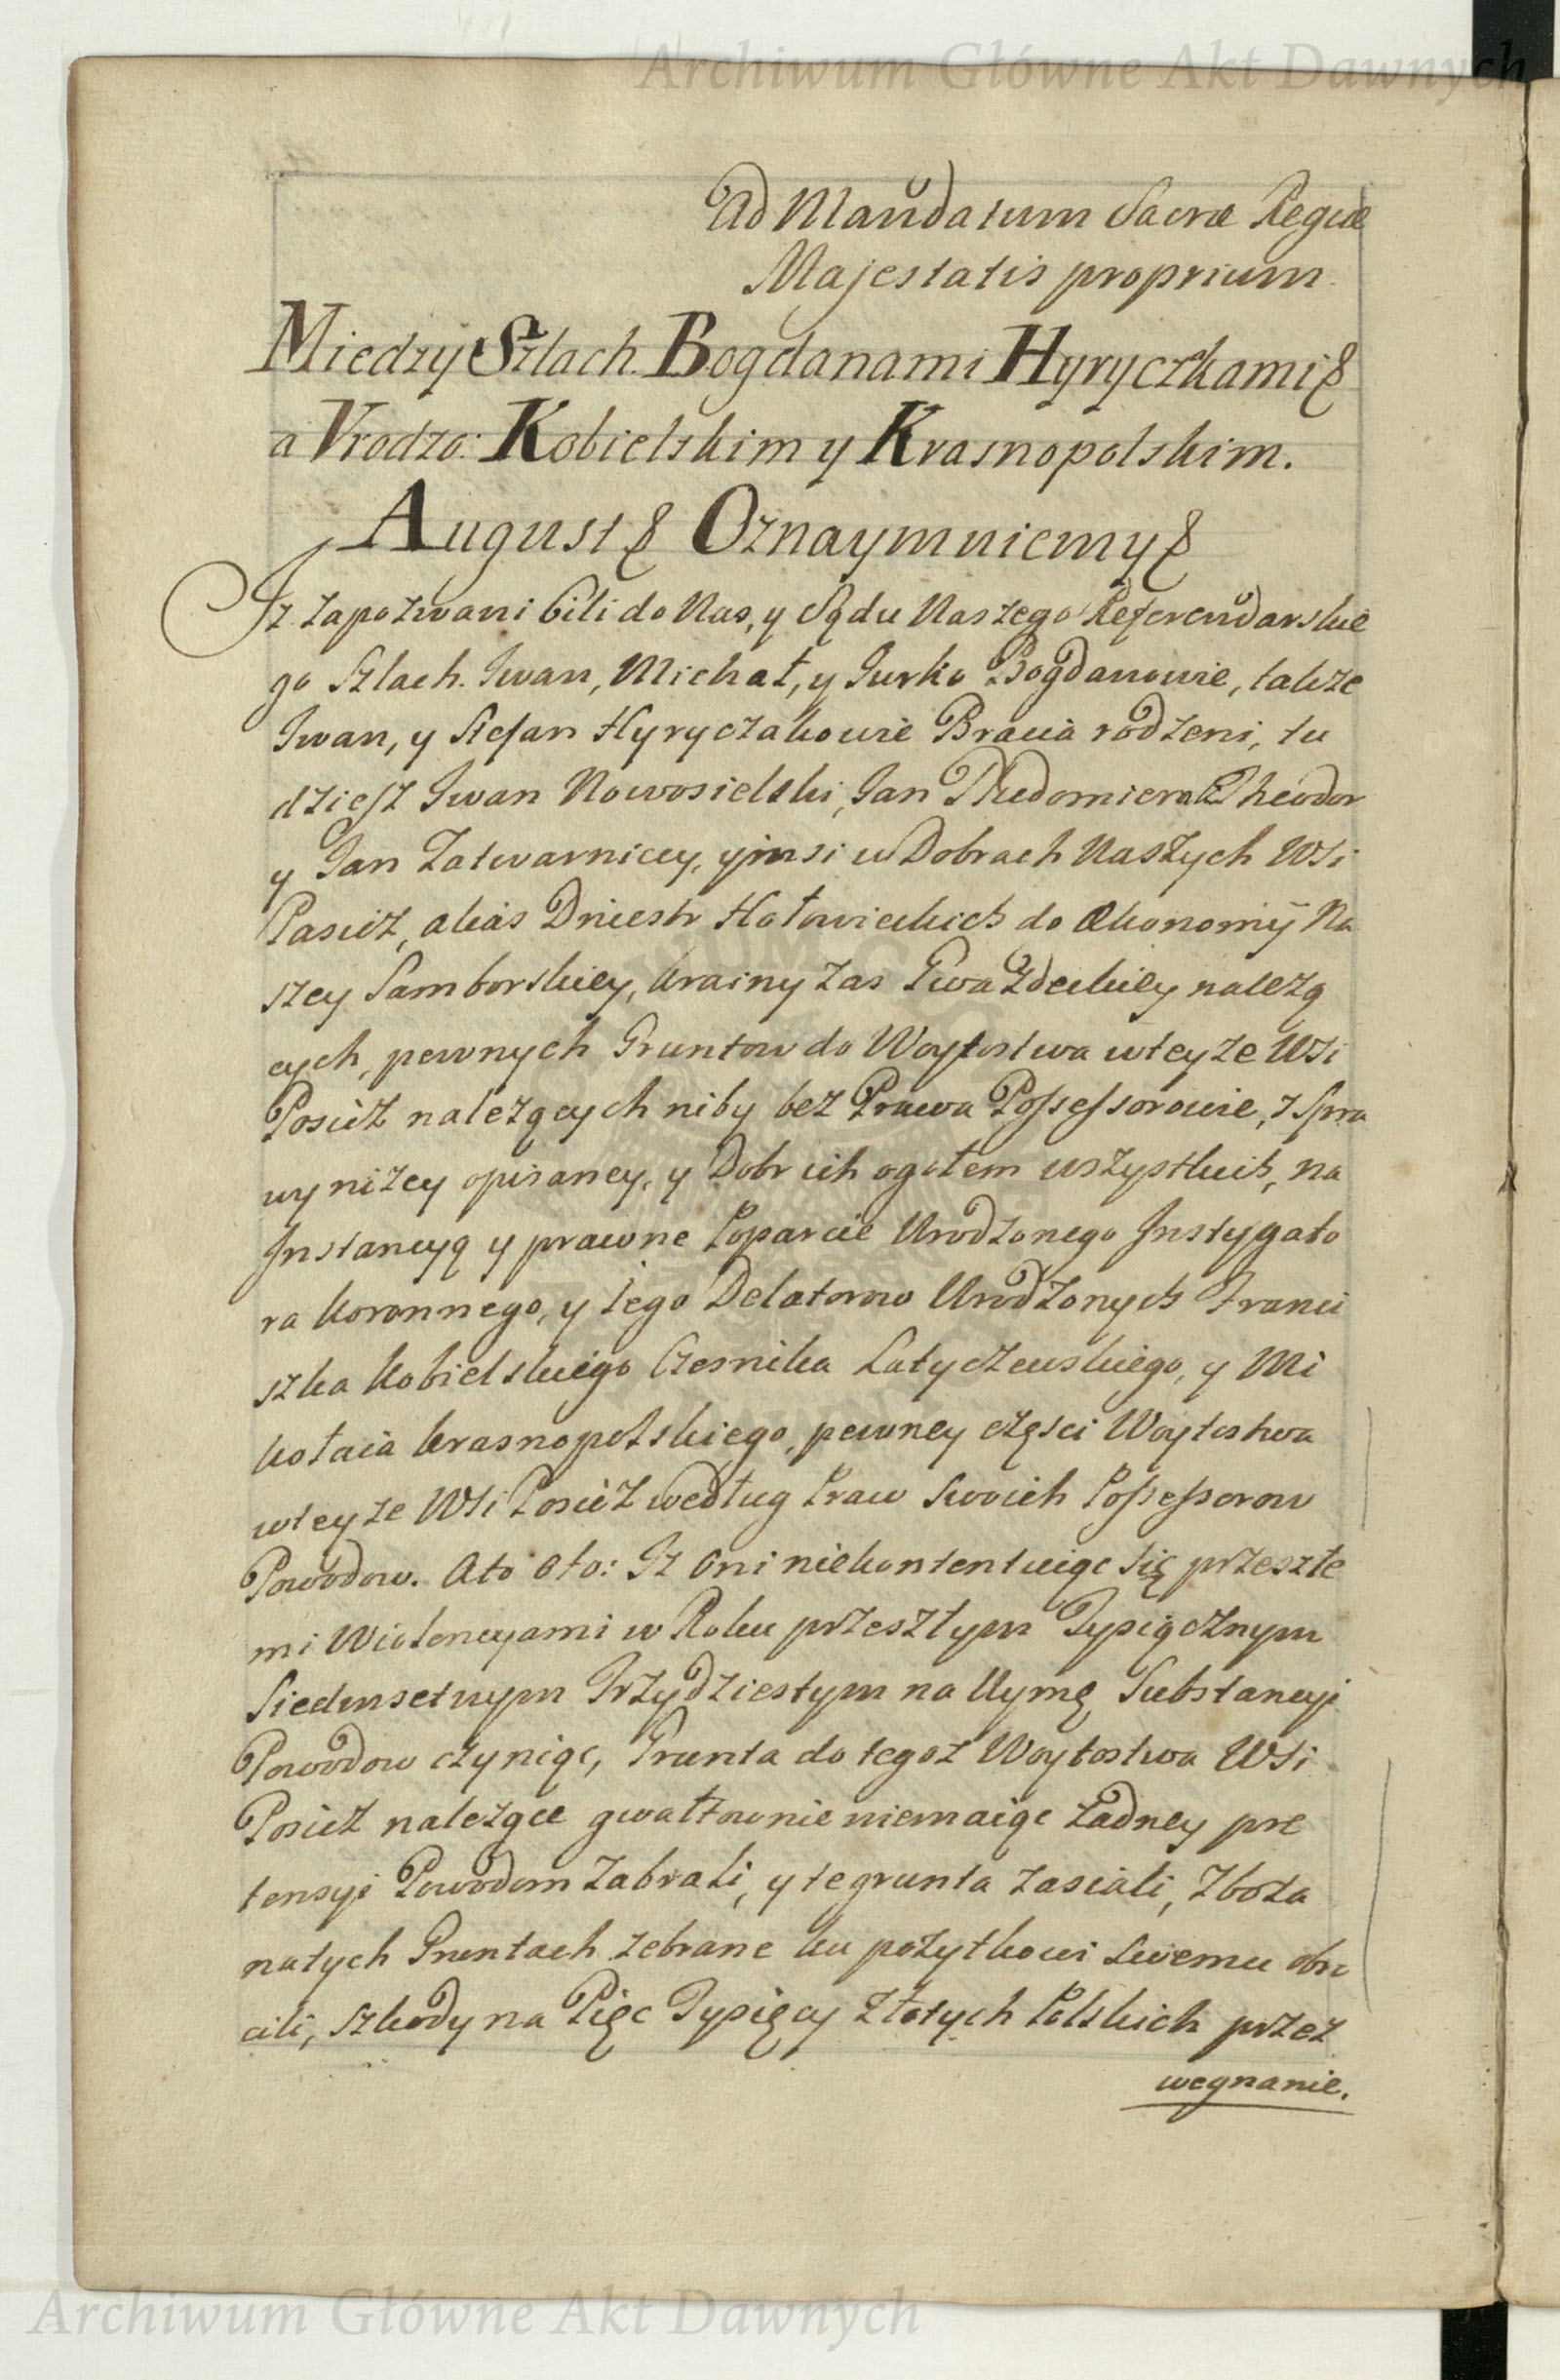 Archiwum Główne Akt Dawnych
Ad Mandatum Sacræ Regiæ
Majestatis proprium.
Miedzy Szlach. Bogdanami Hyryczkami &
a Vrodzo: Kobielskim y Krasnopolskim.
August & Oznaymuiemy &
Jz zapozwani bili do Nas, y Sądu Naszego Referendarskie
go Szlach. Jwan, Michał, y Jurko Bogdanowie, także
Jwan, y Stefan Hyryczakowie Bracia rodzeni, tu
dziesz Jwan Nowosielski, Jan Theodor
y Jan Zatwarnicey, yinsi w Dobrach Naszych Wsi
Pasicz, alias Dniestr Hołowieckich do Økonomÿ Na
szey Samborskiey, Krainy zas Gwazdeckiey należą
cych, pewnych Gruntow do Woytostwa wteyże Wsi
Posicz należących niby bez Prawa Possessorowie, z Spra
wy niżey opisaney, y Dobr ich ogołem wszystkich, na
Jnstancyą y prawne Poparcie Urodzonego Jnstygato
ra Koronnego, y iego Delatorow Urodzonych Franci
szka Kobielskiego Czesnika Latyczewskiego, y Mi
kołaia Krasnopolskiego, pewney części Woytostwa
wteyże Wsi Posicz według Praw Swoich Possessorow
Powodow. Ato oto: Jz oni niekontentuiąc się przeszłe
mi Wiolencyami w Roku przeszłym Tysiącznym
Siedmsetnym Trzydziestym na Uymę Substancyi
Powodow czyniąc, Grunta do tegoz Woytostwa Wsi
Posicz należące gwałtownie niemaiąc żadney pre
tensyi Powodom zabrali, y te grunta zasiali, Zboża
natych Gruntach zebrane ku pożytkowi swemu obro
cili, szkody na Pięc Tysięcy Złotych Polskich przez
wegnanie.
Archiwum Główne Akt Dawnych